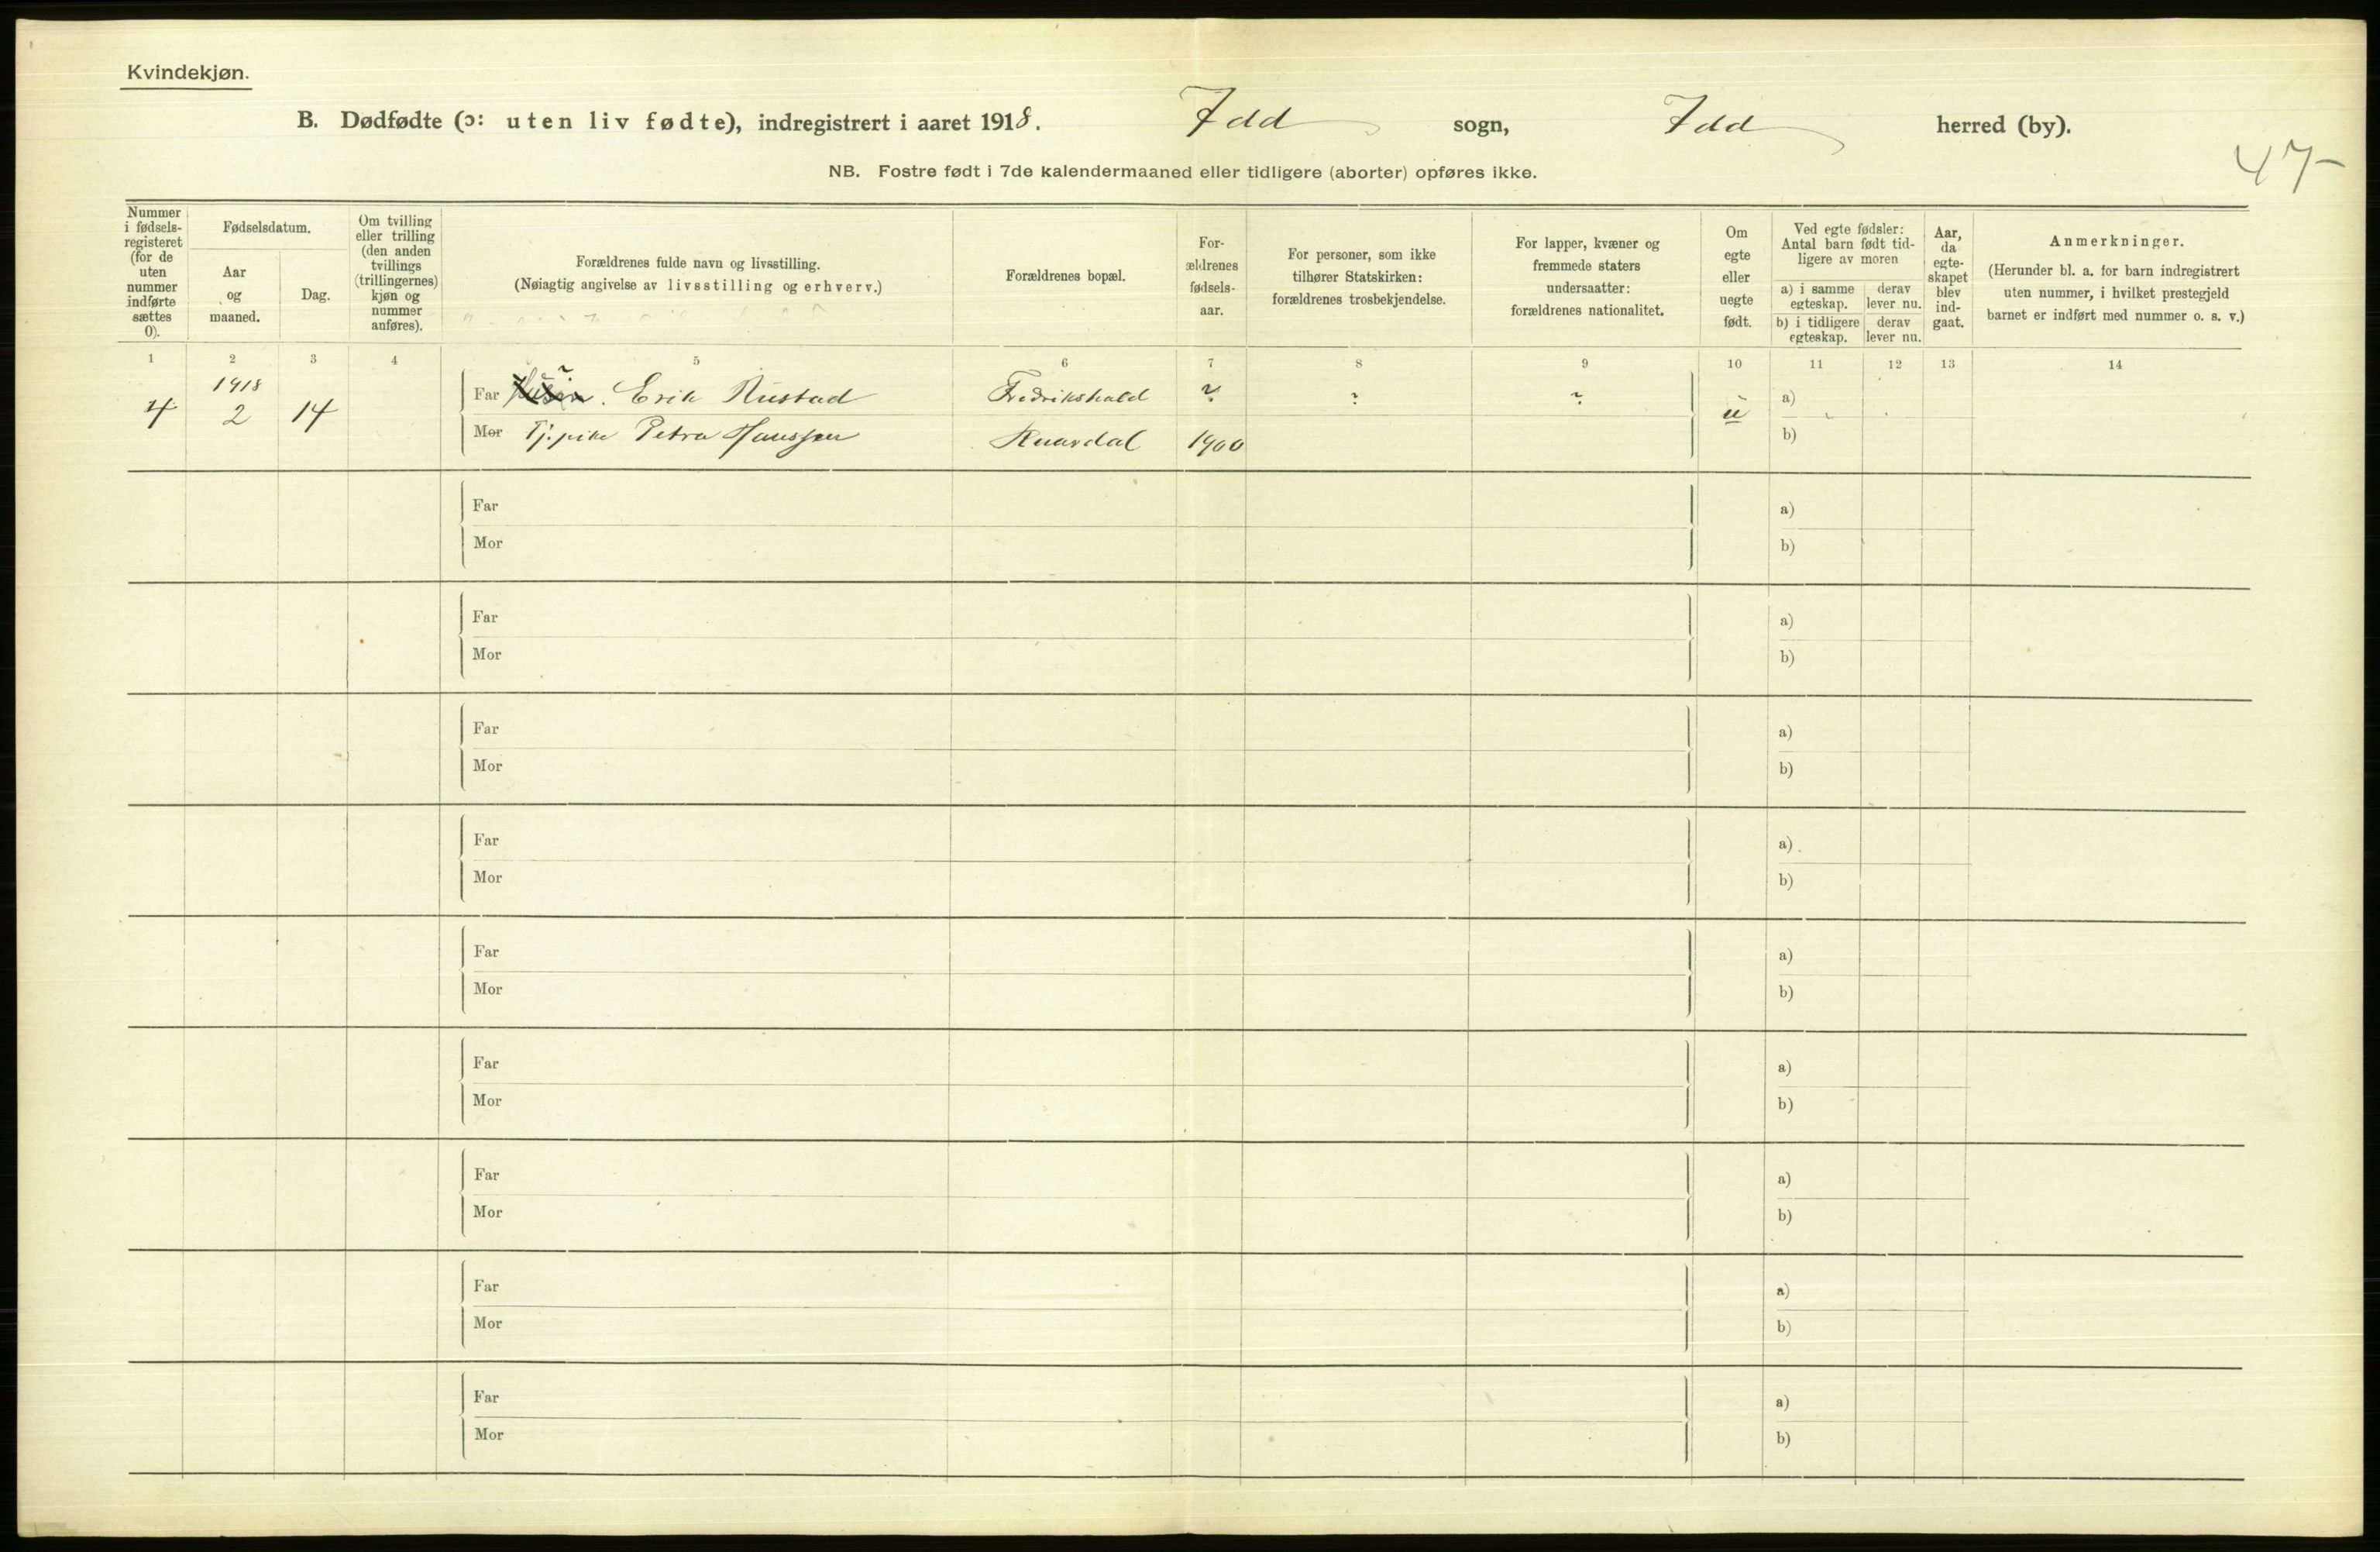 Kvindekjøn.
B. Dødfødte (ɔ: uten liv fødte), indregistrert i aaret 1918. Idd sogn, Idd herred (by).
47-
NB. Fostre født i 7de kalendermaaned eller tidligere (aborter) opføres ikke.
Nummer i fødsels-registeret (for de uten nummer indførte sættes 0).
Fødselsdatum.
Aar og maaned.
Dag.
Om tvilling eller trilling (den anden tvillings (trillingernes) kjøn og nummer anføres).
Forældrenes fulde navn og livsstilling.
(Nøiagtig angivelse av livsstilling og erhverv.)
Forældrenes bopæl.
For-ældrenes fødsels-aar.
For personer, som ikke tilhører Statskirken: forældrenes trosbekjendelse.
For lapper, kvæner og fremmede staters undersaatter: forældrenes nationalitet.
Om egte eller uegte født.
Ved egte fødsler: Antal barn født tid-ligere av moren
a) i samme egteskap.
derav lever nu.
b) i tidligere egteskap.
derav lever nu.
Aar, da egte-skapet blev ind-gaat.
Anmerkninger.
(Herunder bl. a. for barn indregistrert uten nummer, i hvilket prestegjeld barnet er indført med nummer o. s. v.)
1 2 3 4 5 6 7 8 9 10 11 12 13 14
1918
4 2 14 Far Erik Rustad Fredrikshald ? ? ? u a)
Mor Tj.pike Petra Hanssen 1900 b)
Far a)
Mor b)
Far a)
Mor b)
Far a)
Mor b)
Far a)
Mor b)
Far a)
Mor b)
Far a)
Mor b)
Far a)
Mor b)
Far a)
Mor b)
Far a)
Mor b)